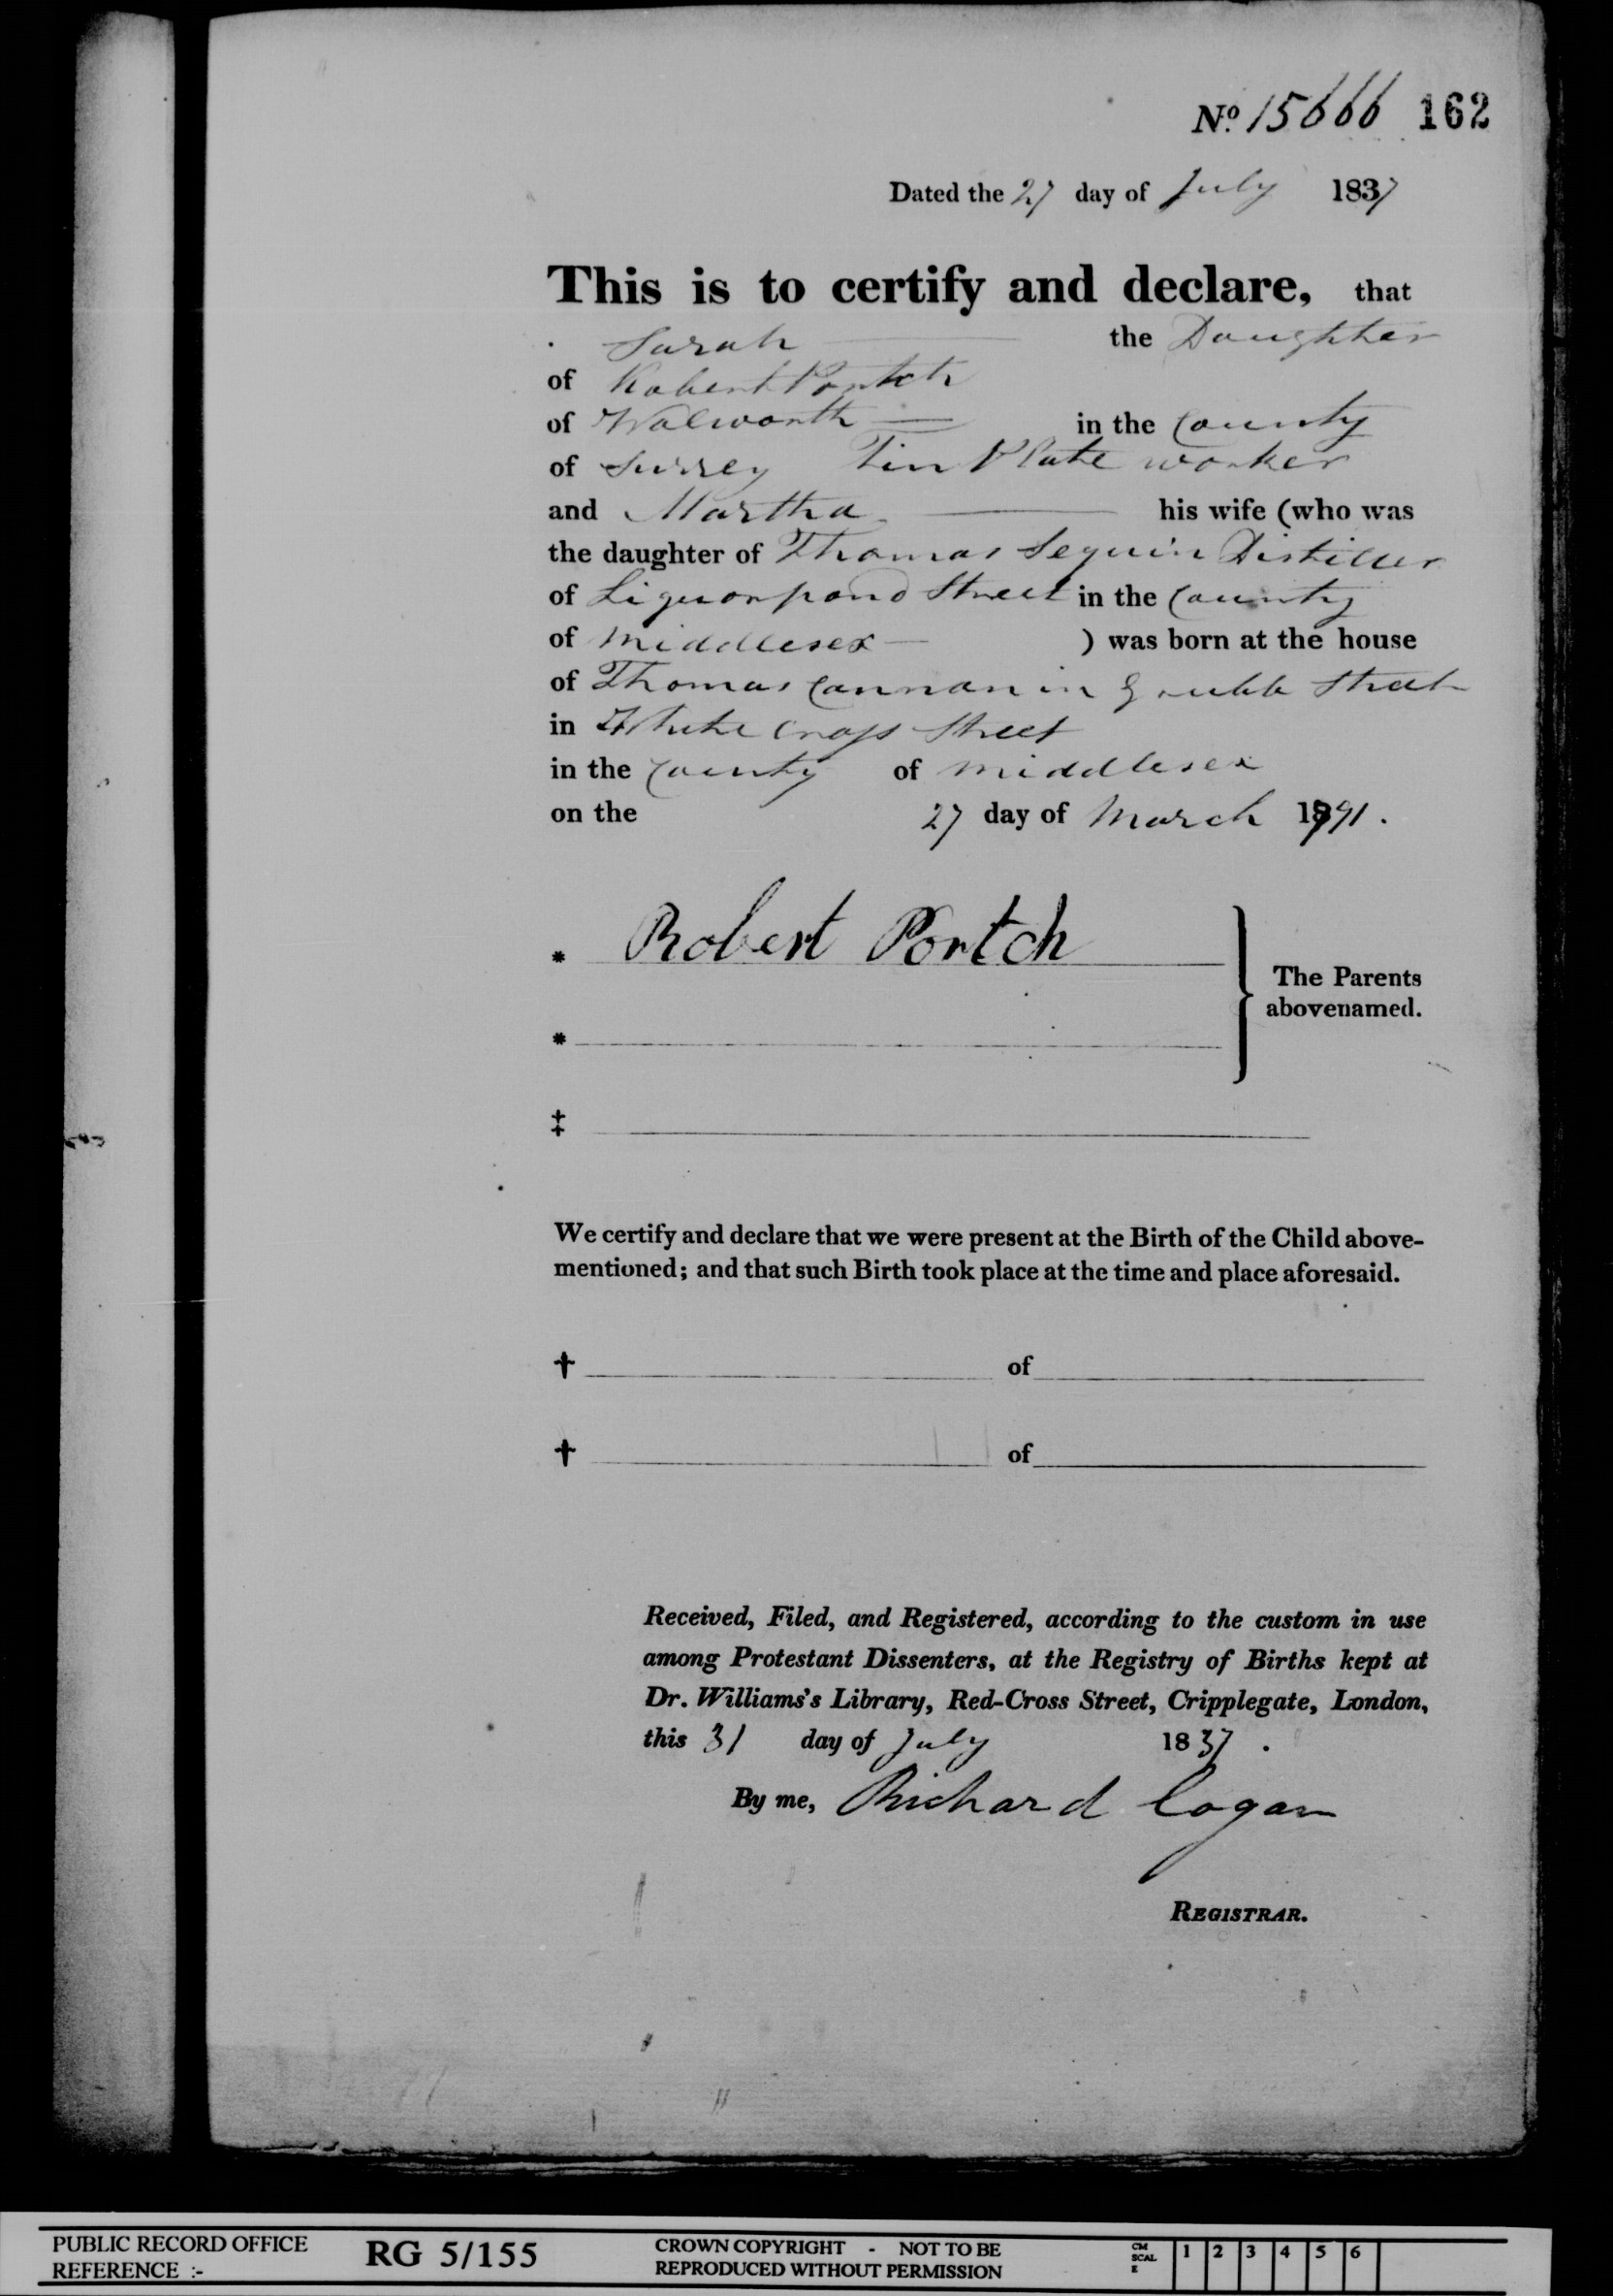 No. 15666 162
Dated the 27 day of July 1837
This is to certify and declare, that
Sarah the Daughter
of Robert Portch
of Walworth in the County
of Surrey Tin Plate worker
and Martha his wife (who was
the daughter of Thomas Sequin Distiller
of Liquorpond Street in the County
of Middlesex ) was born at the house
of Thomas Cannan in Grubb Street
in White Cross Street
in the County of Middlesex
on the 27 day of March 1791.
* Robert Portch
The Parents
abovenamed.
*
‡
We certify and declare that we were present at the Birth of the Child above-
mentioned; and that such Birth took place at the time and place aforesaid.
† of
† of
Received, Filed, and Registered, according to the custom in use
among Protestant Dissenters, at the Registry of Births kept at
Dr. Williams's Library, Red-Cross Street, Cripplegate, London,
this 31 day of July 1837.
By me, Richard Cogan
REGISTRAR.
PUBLIC RECORD OFFICE
REFERENCE :-
RG 5/155
CROWN COPYRIGHT - NOT TO BE
REPRODUCED WITHOUT PERMISSION
CM
SCAL
E
1 2 3 4 5 6